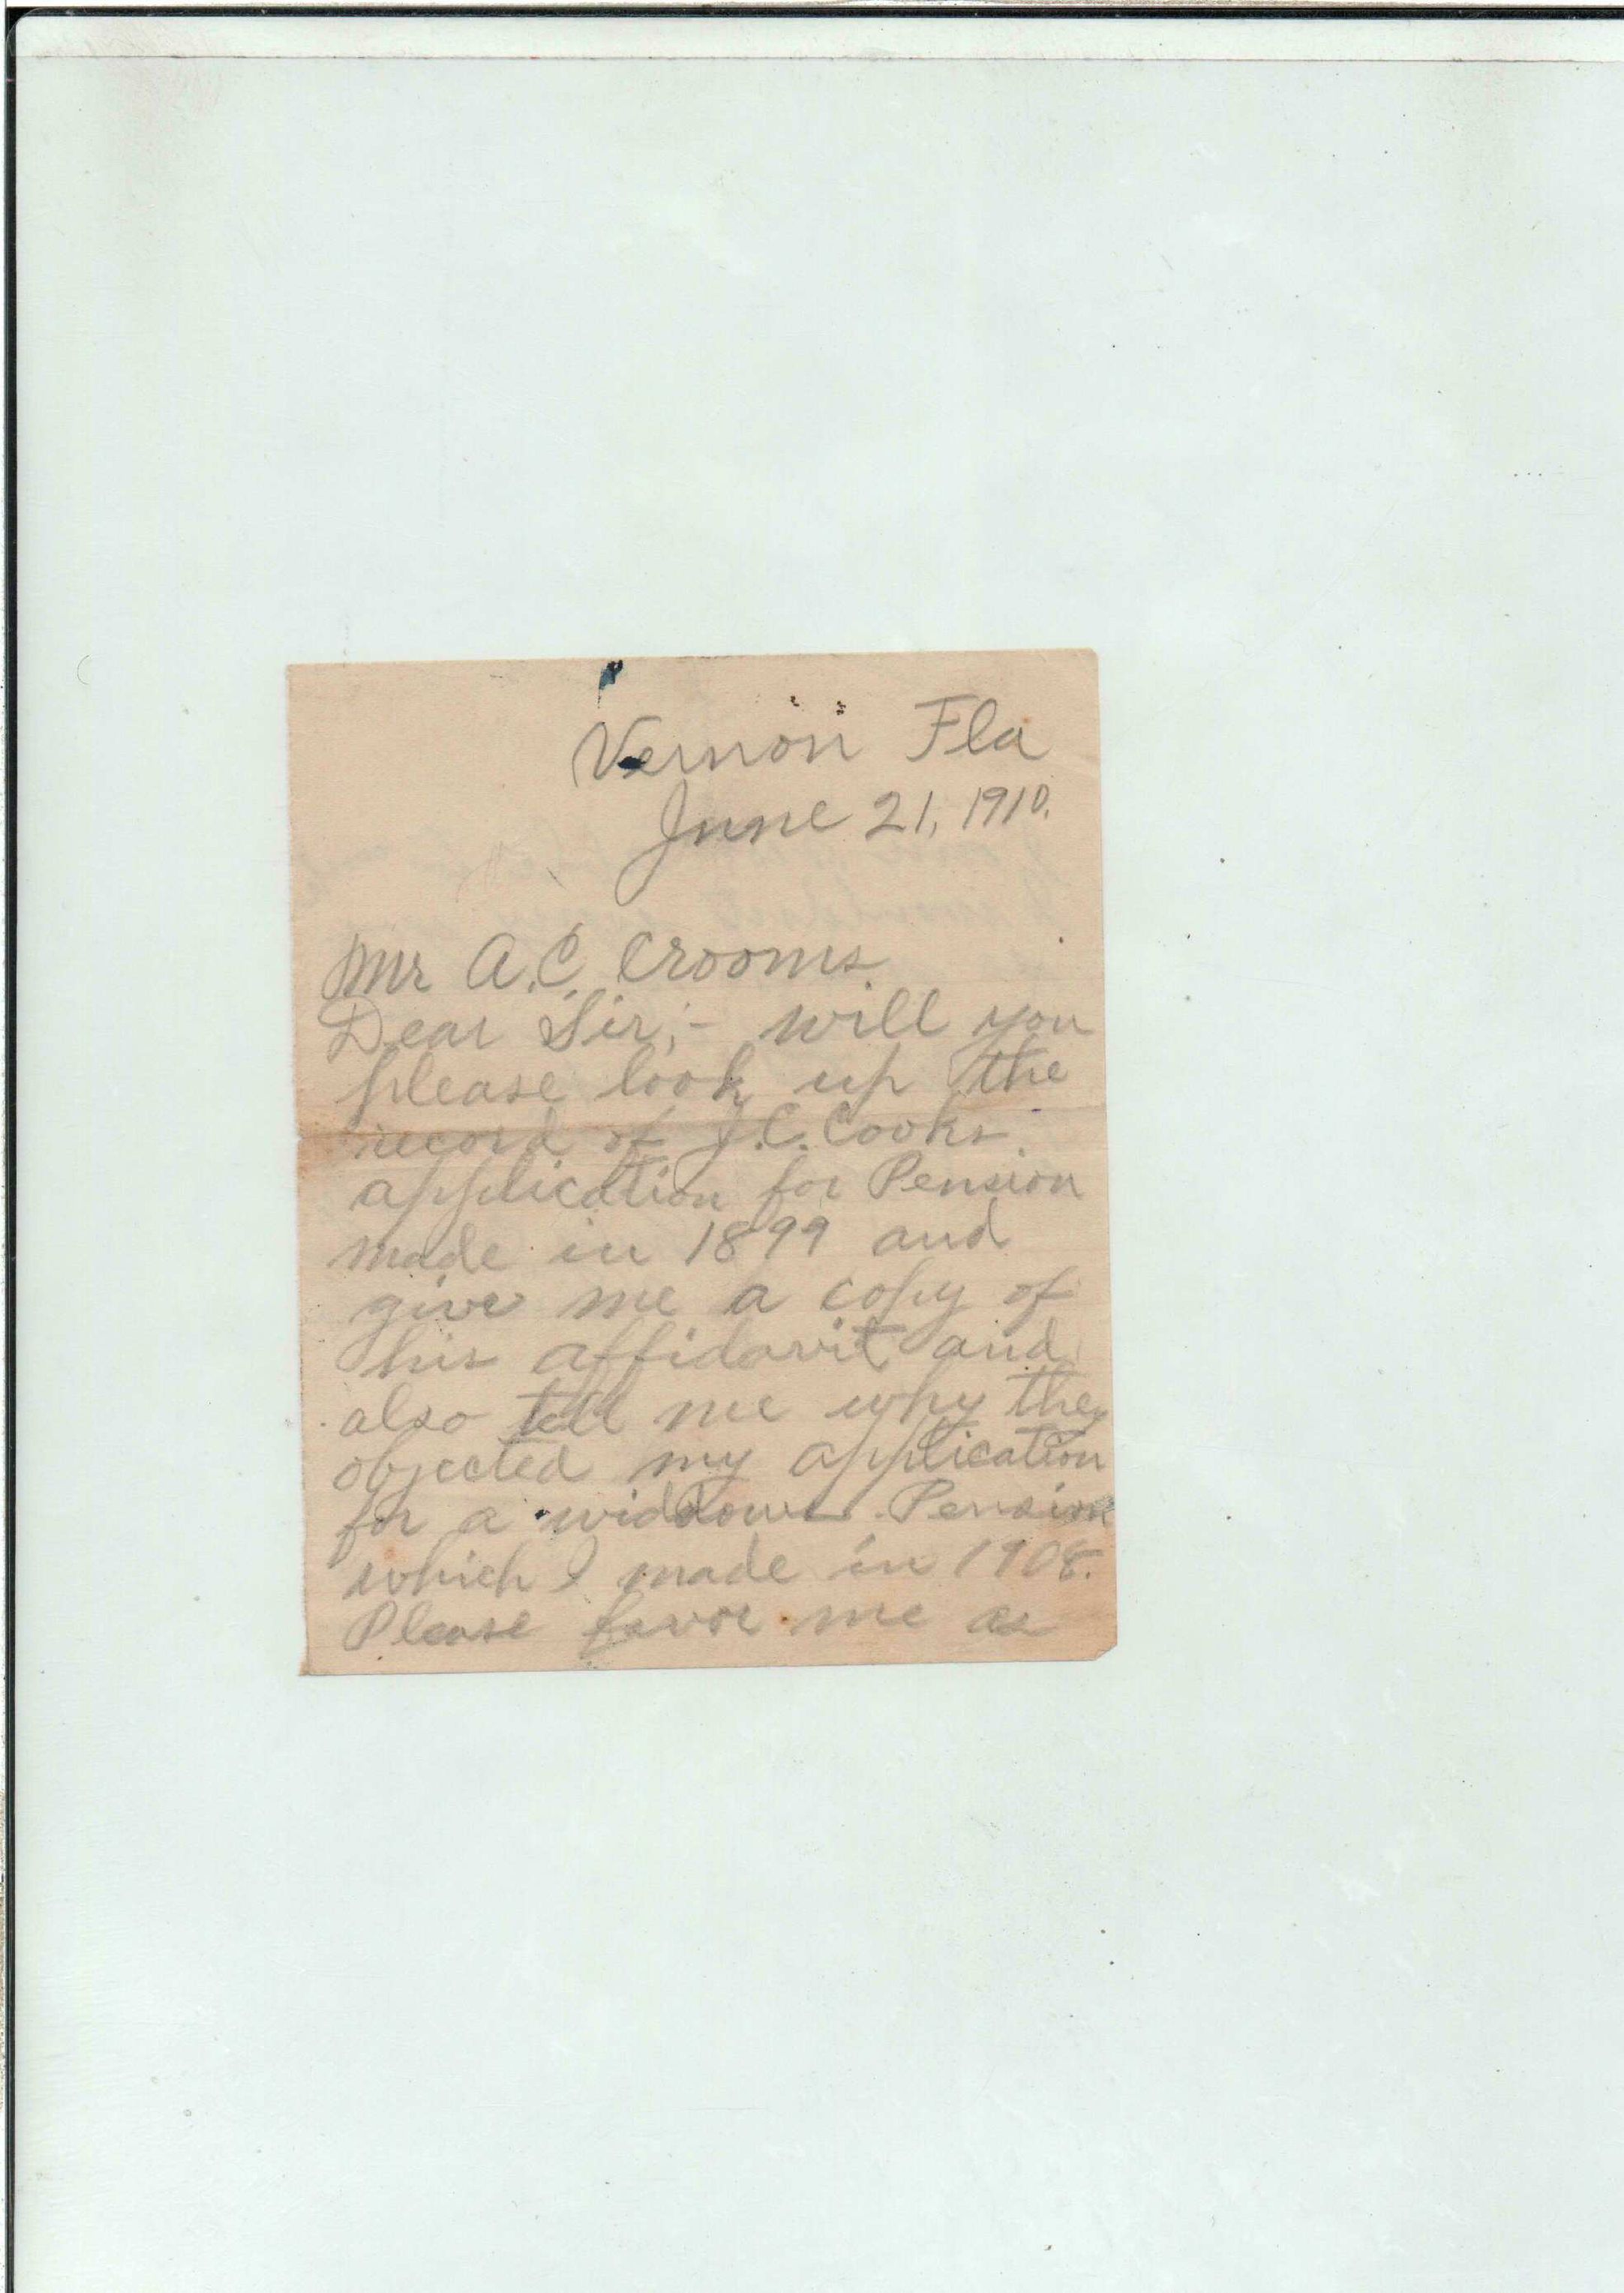 Vernon Fla
June 21, 1910.
Mr A.C. Crooms
Dear Sir;- will you
please look up the
record of J.C. Cooks
application for Pension
made in 1899 and
give me a copy of
his affidavit and
also tell me why they
objected my application
for a widdows Pension
which I made in 1908.
Please favor me as